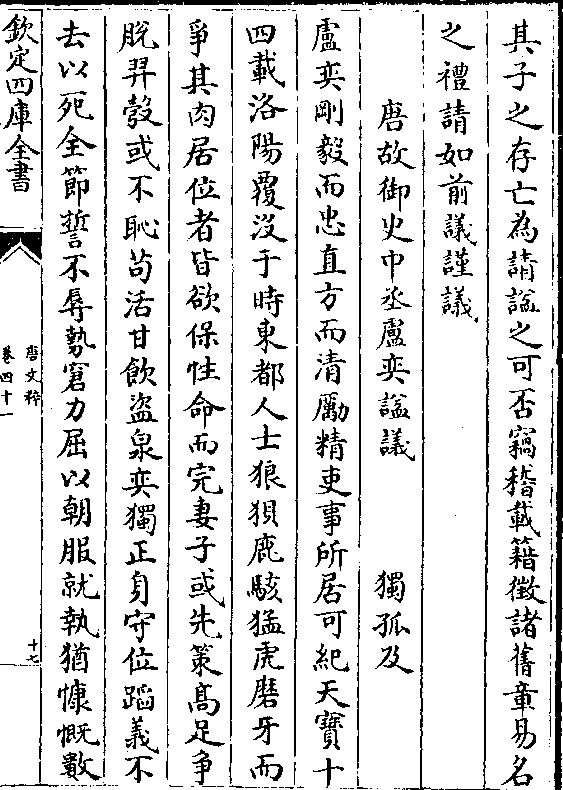 其子之存亡為請諡之可否竊稽載籍徵諸舊章易名
之禮請如前議謹議
唐故御史中丞盧奕諡議 獨孤及
盧奕剛毅而忠直方而清勵精吏事所居可紀天寶十
四載洛陽覆没于時東都人士狼狽鹿駭猛虎磨牙而
爭其肉居位者皆欲保性命而完妻子或先策高足爭
脫羿彀或不恥苟活甘飲盜泉奕獨正身守位蹈義不
去以死全節誓不辱勢窘力屈以朝服就執猶慷慨數
欽定四庫全書
唐文粹
卷四十一
十七